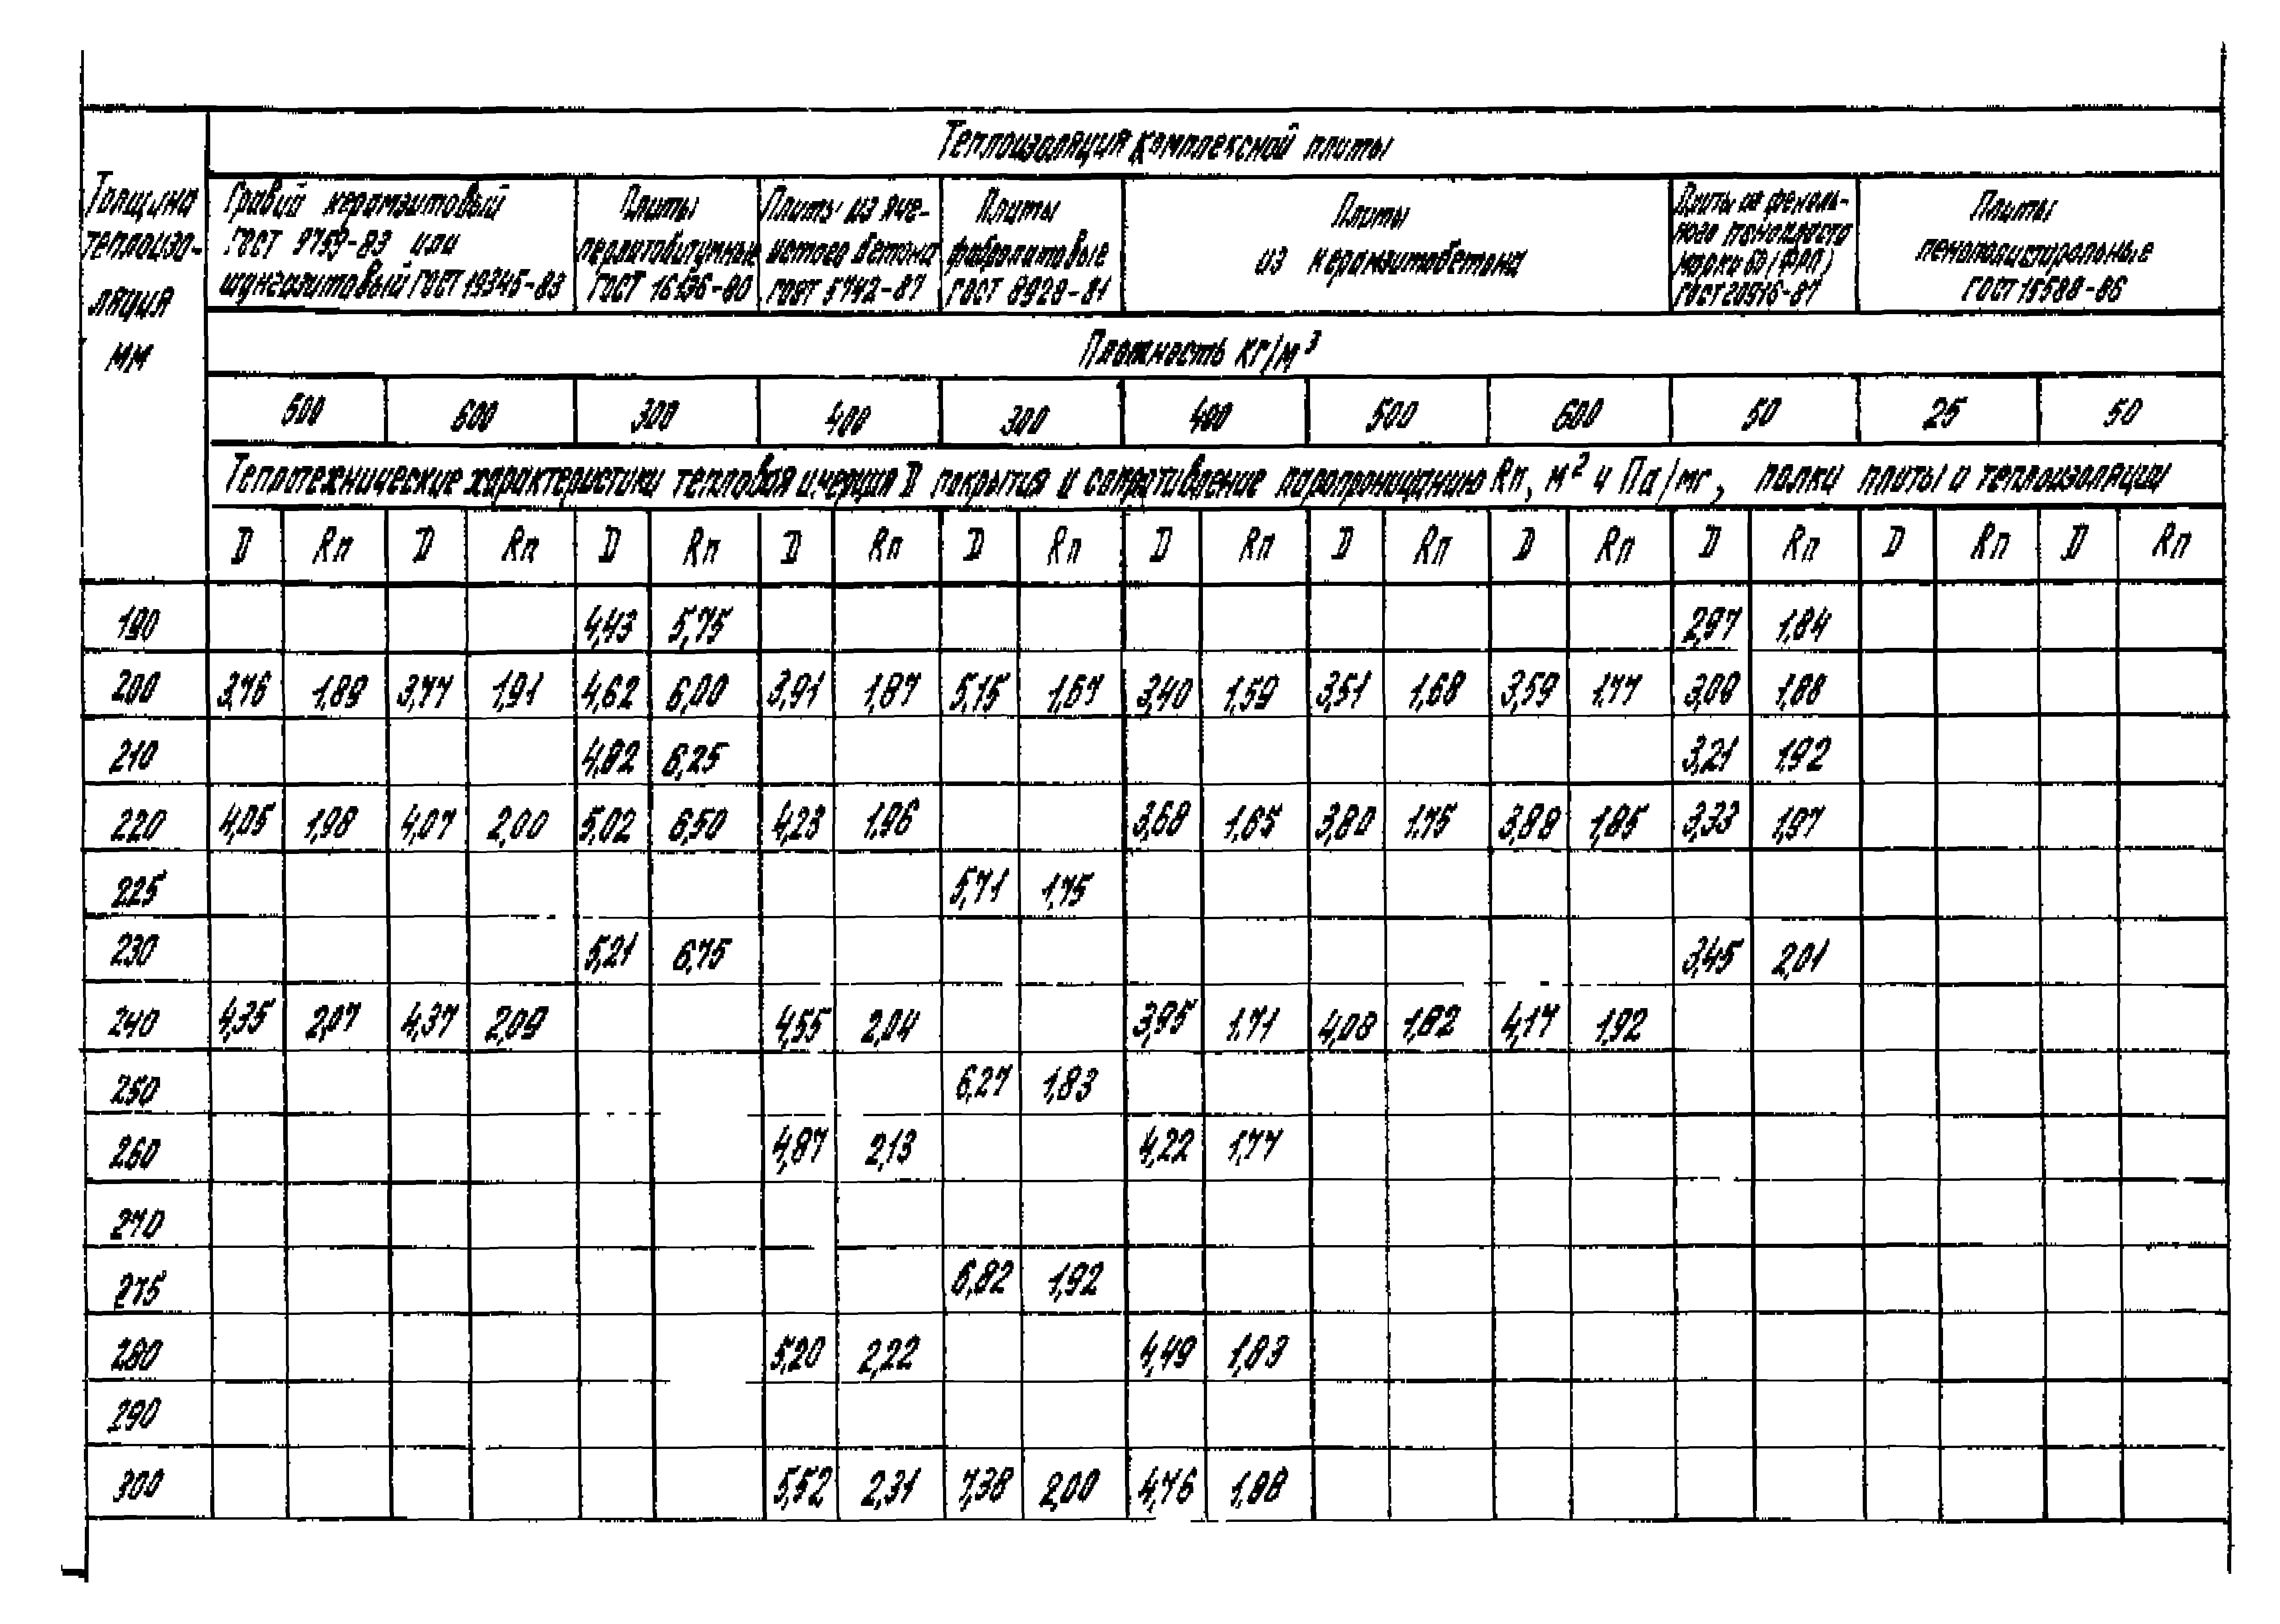 Теплоизоляция комплексной плиты
Толщина
теплоизо-
ляция
мм
Гравий керамзитовый
ГОСТ 9759-83 или
шунгизитовый ГОСТ 19345-83
Плиты
перлитобитумные
ГОСТ 16136-80
Плиты из яче-
истого бетона
ГОСТ 5742-87
Плиты
фибролитовые
ГОСТ 8928-81
Плиты
из керамзитобетона
Плиты из феноль-
ного пенопласта
марки 50 (ФРП)
ГОСТ 20916-87
Плиты
пенополистирольные
ГОСТ 15588-86
Плотность кг/м³
500 600 300 400 300 400 500 600 50 25 50
Теплотехнические характеристики тепловая инерция D покрытия и сопротивление паропроницанию Rп, м² ч Па/мг, полки плиты и теплоизоляции
D Rп D Rп D Rп D Rп D Rп D Rп D Rп D Rп D Rп D Rп D Rп
190 4,43 5,75 2,97 1,84
200 3,76 1,89 3,77 1,91 4,62 6,00 3,91 1,87 5,15 1,67 3,40 1,59 3,51 1,68 3,59 1,77 3,09 1,88
210 4,82 6,25 3,21 1,92
220 4,05 1,98 4,07 2,00 5,02 6,50 4,23 1,96 3,68 1,65 3,80 1,75 3,88 1,85 3,33 1,97
225 5,71 1,75
230 5,21 6,75 3,45 2,01
240 4,35 2,07 4,37 2,09 4,55 2,04 3,95 1,71 4,08 1,82 4,17 1,92
250 6,27 1,83
260 4,87 2,13 4,22 1,77
270
275 6,82 1,92
280 5,20 2,22 4,49 1,83
290
300 5,52 2,31 7,38 2,00 4,76 1,88